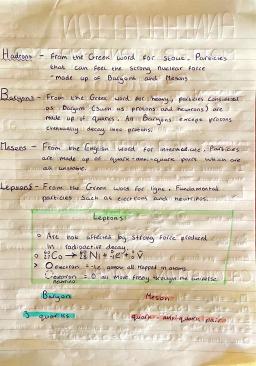 Hadrons - From the Greek word for stout. Particles
that can feel the strong nuclear force
made up of Baryons and Mesons
Baryons - From the Greek word for heavy, particles considered
as Baryon (such as protons and neutrons) are
made up of quarks. All Baryons except protons
eventually decay into protons.
Mesons - From the English word for intermediate. Particles
are made up of quark-anti-quark pairs which are
all unstable.
Leptons - From the Greek word for light. Fundamental
particles such as electrons and neutrinos.
Leptons:
Are not affected by strong force produced
in radioactive decay.
Co → Ni + e + V̄
electron = -1e almost all trapped in atoms
neutrino = 0 all move freely through the universe
Baryon
Meson
3 quarks
quark - anti-quark pairs